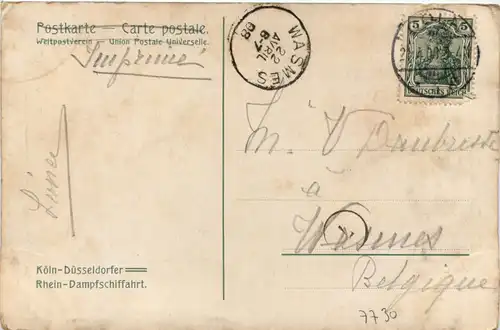 Postkarte — Carte postale.
Weltpostverein — Union Postale Universelle.
Imprimé
WASMES
22
AVRIL
8-7
08
5 5
DEUTSCHES REICH
M. V
à
Wasmes
Belgique
Köln-Düsseldorfer
Rhein-Dampfschiffahrt.
7730